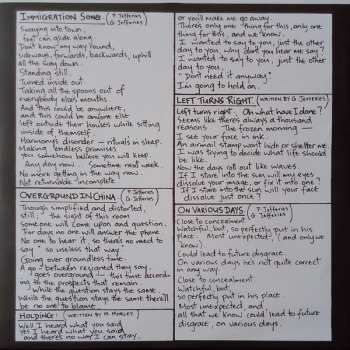 IMMIGRATION SONG (P. Jefferies
G. Jefferies)
Swaying into town,
feet can glide along
Don't know my way round,
sideways, forwards, backwards, uphill
all the way down
Standing still
Turned inside out
Taking all the spoons out of
everybody else's mouths
And this could be anywhere,
and this could be anyone else
Left outside their houses while sitting
inside of themself
Harmony's disorder — rituals in sleep.
Making endless promises
you somehow believe you will keep.
Any day now Sometime next week
No more getting in the way now
Not returnable incomplete
OVERGROUND IN CHINA (P. Jefferies
G. Jefferies)
Though simplified and distorted,
still, the sight of this room
Someone will come upon and question.
For days no one will answer the phone
No one to hear it so there's no need to
say "so useless that way"
Going over groundless time.
A go-between resigned they say,
"goes overground — this time according
to the prospects that remain
While the question stays the same
While the question stays the same there'll
be no one to blame
HOLDING: (WRITTEN BY M. MORLEY)
Well I heard what you said
yes I heard what you said
and there's no way I can stay.
or you'll make me go away.
There's only one thing for this, only one
thing for this, and we know.
I wanted to say to you, just the other
day to you, why don't you hear me say?
I wanted to say to you, just the other
day to you,
"Don't need it anyway"
I'm going to hold on.
LEFT TURNS RIGHT. (WRITTEN BY G. JEFFERIES)
Left turns right. Oh what have I done?
Seems like there's always a thousand
reasons The frozen morning —
I see your face in ink.
An animal stamp won't hide or shelter me.
I was trying to decide what life should
be like.
Now the days go out like waves
If I stare into the sun will my eyes
dissolve your image, or fix it into one?
If I stare into the sun will your face
dissolve just once?
ON VARIOUS DAYS. (P. Jefferies
G. Jefferies)
Close to concealment
Watchful, but, so perfectly put in his
place. Most unexpected, (and only we
know).
Could lead to future disgrace
On various days he's not quite correct
in any way.
Close to concealment
Watchful, but,
so perfectly put in his place
Most unexpected and
all that we know could lead to future
disgrace, on various days.